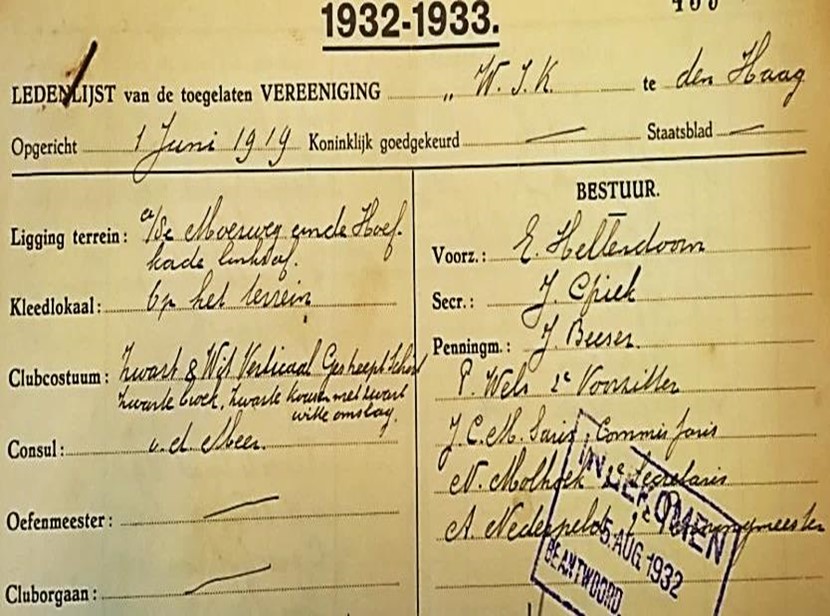 1932-1933.
LEDENLIJST van de toegelaten VEREENIGING „ W.I.K. te den Haag
Opgericht 1 Juni 1919 Koninklijk goedgekeurd — Staatsblad —
Ligging terrein: a/de Moerweg einde Hoef-
kade linksaf.
Kleedlokaal: Op het terrein
Clubcostuum: Zwart & Wit Verticaal Gestreept
Zwarte broek, Zwarte kousen met zwart
witte omslag.
Consul: v.d. Meer.
Oefenmeester: —
Cluborgaan: —
BESTUUR.
Voorz.: E. Hellendoorn
Secr.: J.
Penningm.: J. Beeser.
P. Wels 2e Voorzitter
J.C.M. Saris, Commissaris
N. Molhoek 2e Secretaris
A. Nederpelt, 2e Penningmeester
INGEKOMEN
5 AUG 1932
BEANTWOORD